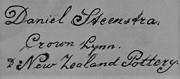 Daniel Steenstra.
Crown Lynn.
& New Zealand Pottery.